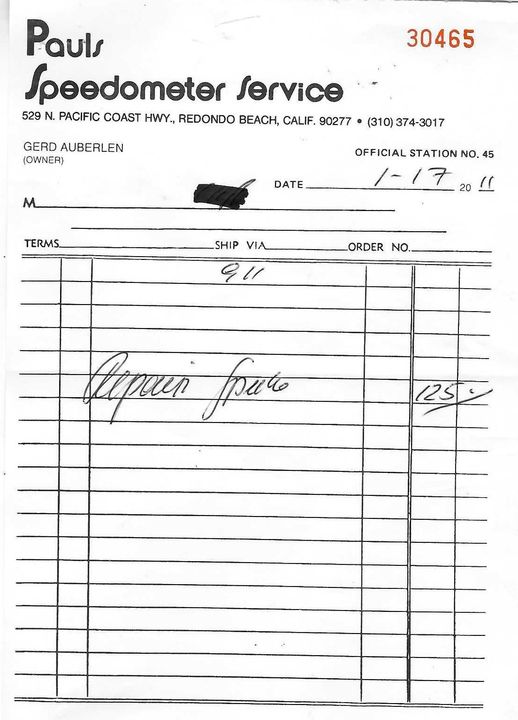 Pauls
30465
Speedometer Service
529 N. PACIFIC COAST HWY., REDONDO BEACH, CALIF. 90277 • (310) 374-3017
GERD AUBERLEN
(OWNER)
OFFICIAL STATION NO. 45
DATE 1-17 20 11
M
TERMS SHIP VIA ORDER NO.
911
Repair Speedo 125.-